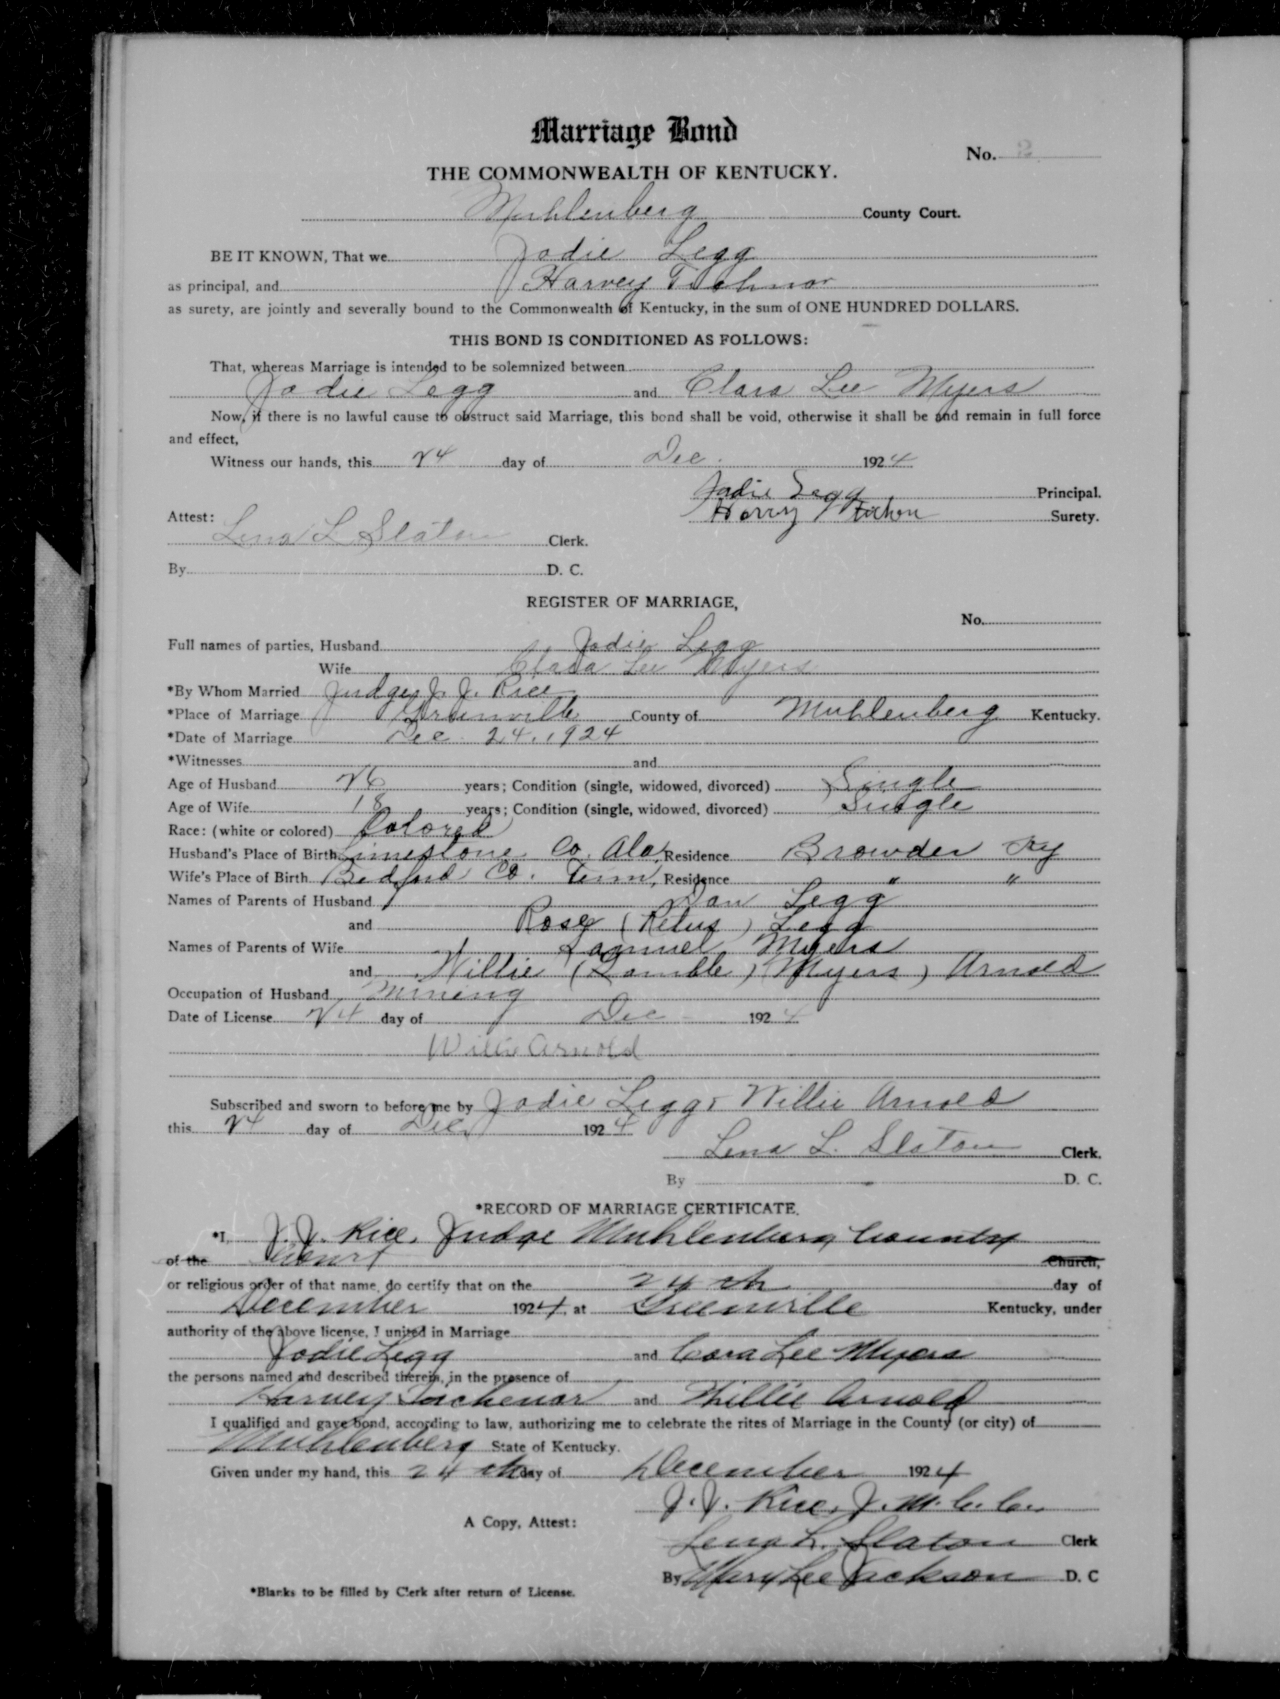 Marriage Bond
No. 2
THE COMMONWEALTH OF KENTUCKY.
Muhlenberg County Court.
BE IT KNOWN, That we Jodie Legg
as principal, and Harvey
as surety, are jointly and severally bound to the Commonwealth of Kentucky, in the sum of ONE HUNDRED DOLLARS.
THIS BOND IS CONDITIONED AS FOLLOWS:
That, whereas Marriage is intended to be solemnized between
Jodie Legg and Clara Lee Myers
Now, if there is no lawful cause to obstruct said Marriage, this bond shall be void, otherwise it shall be and remain in full force
and effect,
Witness our hands, this 24 day of Dec. 1924
Jodie Legg Principal.
Harvey Surety.
Attest:
Lena L. Slaton Clerk.
By D. C.
REGISTER OF MARRIAGE,
No.
Full names of parties, Husband Jodie Legg
Wife Clara Lee Myers
*By Whom Married Judge J. J. Rice
*Place of Marriage Greenville County of Muhlenberg Kentucky.
*Date of Marriage Dec. 24, 1924
*Witnesses and
Age of Husband 26 years; Condition (single, widowed, divorced) Single
Age of Wife 18 years; Condition (single, widowed, divorced) Single
Race: (white or colored) Colored
Husband's Place of Birth Limestone Co. Ala, Residence Browder Ky
Wife's Place of Birth Bedford Co. Tenn, Residence " "
Names of Parents of Husband Dan Legg
and Rose ( ) Legg
Names of Parents of Wife Samuel Myers
and Willie (Gamble) Myers) Arnold
Occupation of Husband Mining
Date of License 24 day of Dec 1924
Willie Arnold
Subscribed and sworn to before me by Jodie Legg Willie Arnold
this 24 day of Dec, 1924
Lena L. Slaton Clerk.
By D. C.
*RECORD OF MARRIAGE CERTIFICATE.
*I, J. J. Rice, Judge Muhlenberg County
of the Court Church,
or religious order of that name, do certify that on the 24th day of
December 1924, at Greenville Kentucky, under
authority of the above license, I united in Marriage
Jodie Legg and Cora Lee Myers
the persons named and described therein, in the presence of
Harvey and Willie Arnold
I qualified and gave bond, according to law, authorizing me to celebrate the rites of Marriage in the County (or city) of
Muhlenberg State of Kentucky.
Given under my hand, this 24th day of December 1924
J. J. Rice, J. M. C. C.
A Copy, Attest:
Lena L. Slaton Clerk
By Mary Lee Jackson D. C
*Blanks to be filled by Clerk after return of License.